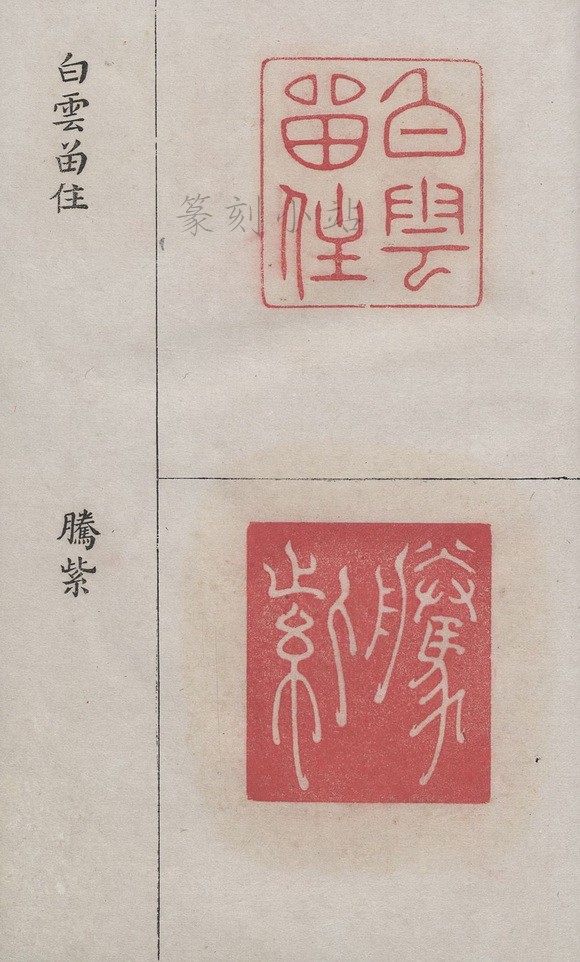 白雲
畱住
白雲畱住
篆刻小站
騰
紫
騰紫